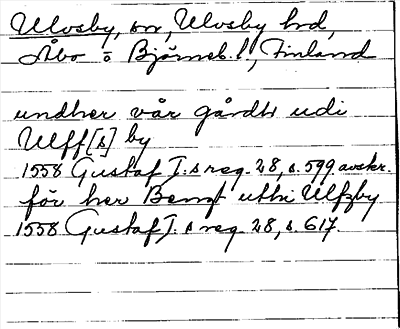 Ulvsby, sn, Ulvsby hrd,
Åbo o Björneb. l., Finland
undher vår gårdh udi
Ulff[s] by
1558 Gustaf I:s reg. 28, s. 599 avskr.
för her Bengt uthi Ulfzby
1558 Gustaf I:s reg 28, s. 617.